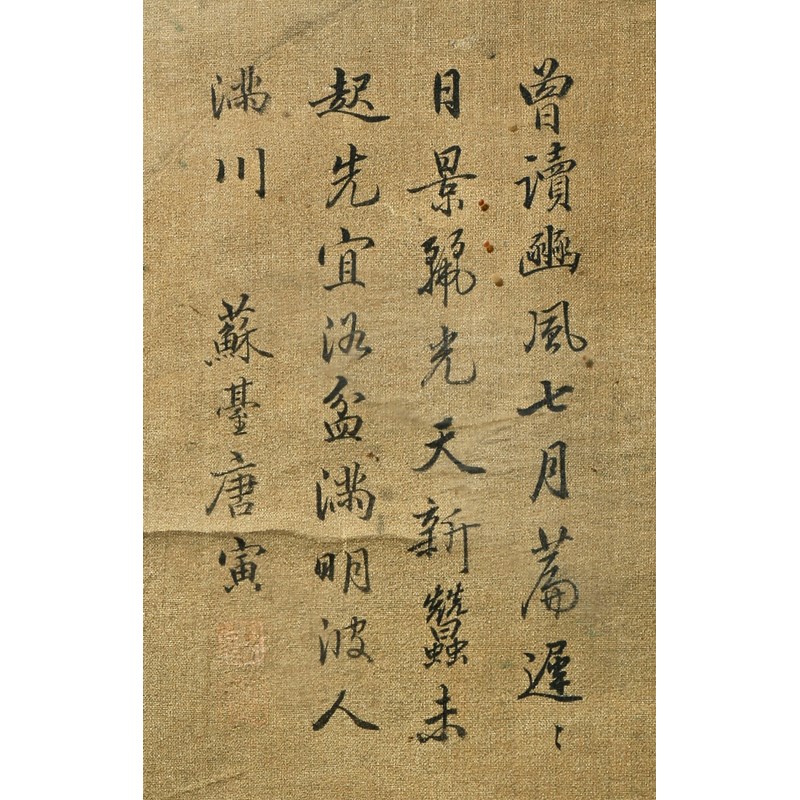 曾讀豳風七月篇遲〻
日景麗光天新蠶未
起先宜浴盆滿明波人
滿川 蘇臺唐寅